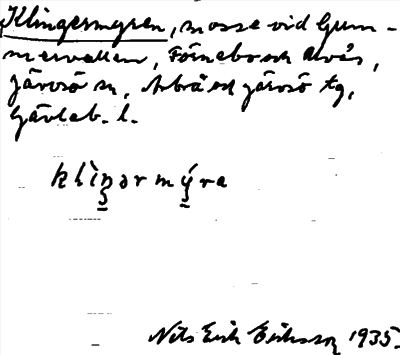 Klingermyren, mosse vid Gum-
mervallen, Förnebo och Åvås,
Järvsö sn, Arbrå och Järvsö tg,
Gävleb. l.
klìŋərmýra
Nils Erik Eriksson 1935.